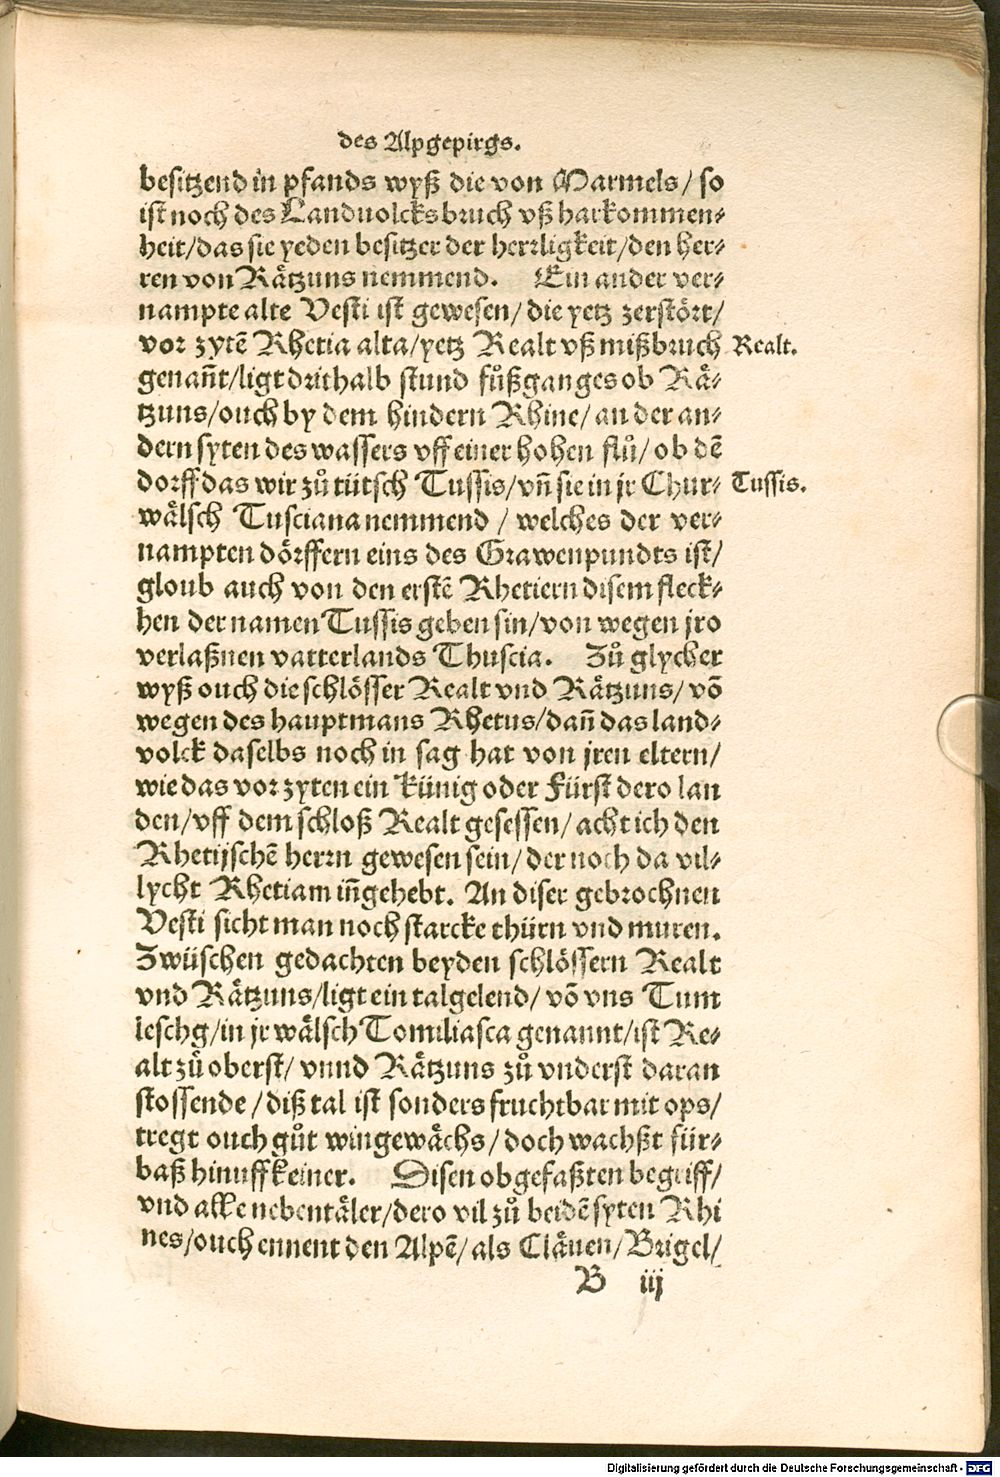 des Alpgepirgs.
besitzend in pfands wyß die von Marmels / so
ist noch des Landuolcks bruch vß harkommen⸗
heit/das sie yeden besitzer der herrligkeit/den her⸗
ren von Rätzuns nemmend. Ein ander ver⸗
nampte alte Vesti ist gewesen/ die yetz zerstört/
vor zytē Rhetia alta/yetz Realt vß mißbruch
Realt.
genañt/ligt drithalb stund fůßganges ob Rä⸗
tzuns/ouch by dem hindern Rhine/ an der an⸗
dern syten des wassers vff einer hohen flů/ ob dē
dorff das wir zů tütsch Tussis/vñ sie in jr Chur⸗
Tussis.
wälsch Tusciana nemmend / welches der ver⸗
nampten dörffern eins des Grawenpundts ist/
gloub auch von den erstē Rhetiern disem fleck⸗
hen der namen Tussis geben sin/von wegen jro
verlaßnen vatterlands Thuscia. Zů glycher
wyß ouch die schlösser Realt vnd Rätzuns/ vō
wegen des hauptmans Rhetus/dañ das land⸗
volck daselbs noch in sag hat von jren eltern/
wie das vor zyten ein künig oder Fürst dero lan
den/vff dem schloß Realt gesessen/ acht ich den
Rhetijschē herrn gewesen sein/ der noch da vil⸗
lycht Rhetiam iñgehebt. An diser gebrochnen
Vesti sicht man noch starcke thürn vnd muren.
Zwüschen gedachten beyden schlössern Realt
vnd Rätzuns/ligt ein talgelend/ vō vns Tum
leschg/in jr wälsch Tomiliasca genannt/ist Re⸗
alt zů oberst/ vnnd Rätzuns zů vnderst daran
stossende /diß tal ist sonders fruchtbar mit ops/
tregt ouch gůt wingewächs/ doch wachßt für⸗
baß hinuff keiner. Disen obgefaßten begriff/
vnd alle nebentäler/dero vil zů beidē syten Rhi
nes/ouch ennent den Alpē/ als Cläuen/ Brigel/
B iij
Digitalisierung gefördert durch die Deutsche Forschungsgemeinschaft - DFG